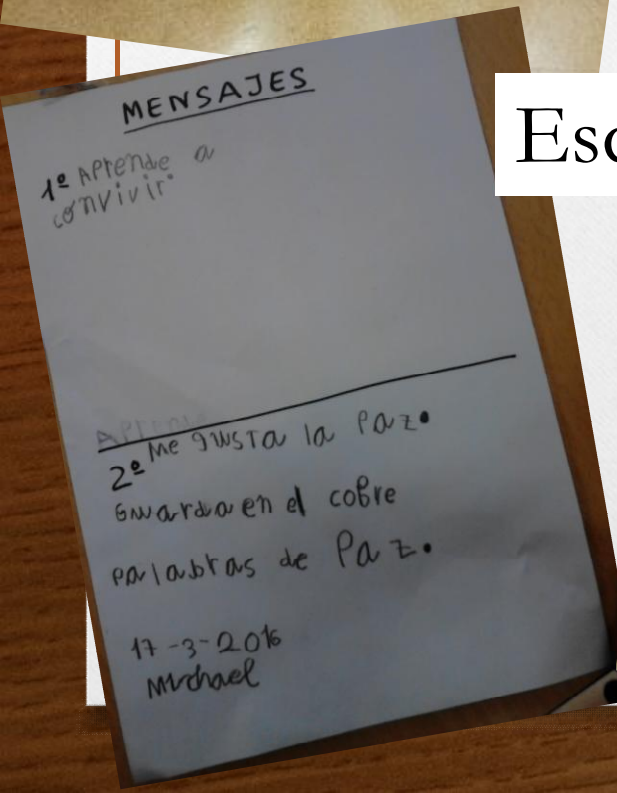 MENSAJES
Esc
1º Aprende a
convivir.
Aprende
2º Me gusta la Paz.
Guarda en el cofre
palabras de Paz.
17-3-2016
Michael